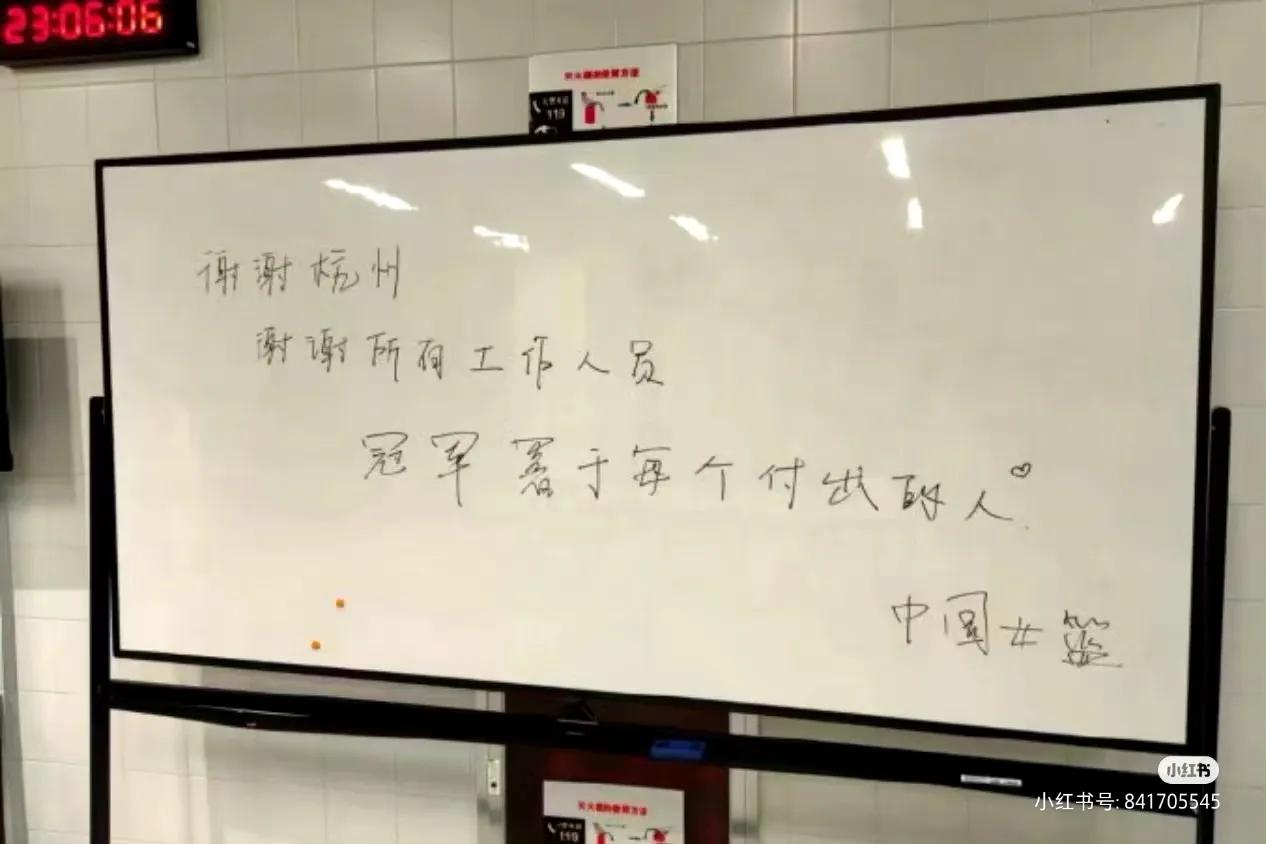 23:06:06
灭火器的使用方法
119
谢谢杭州
谢谢所有工作人员
冠军署于每个付出的人♡
中国女篮
小红书
小红书号: 841705545
灭火器的使用方法
119